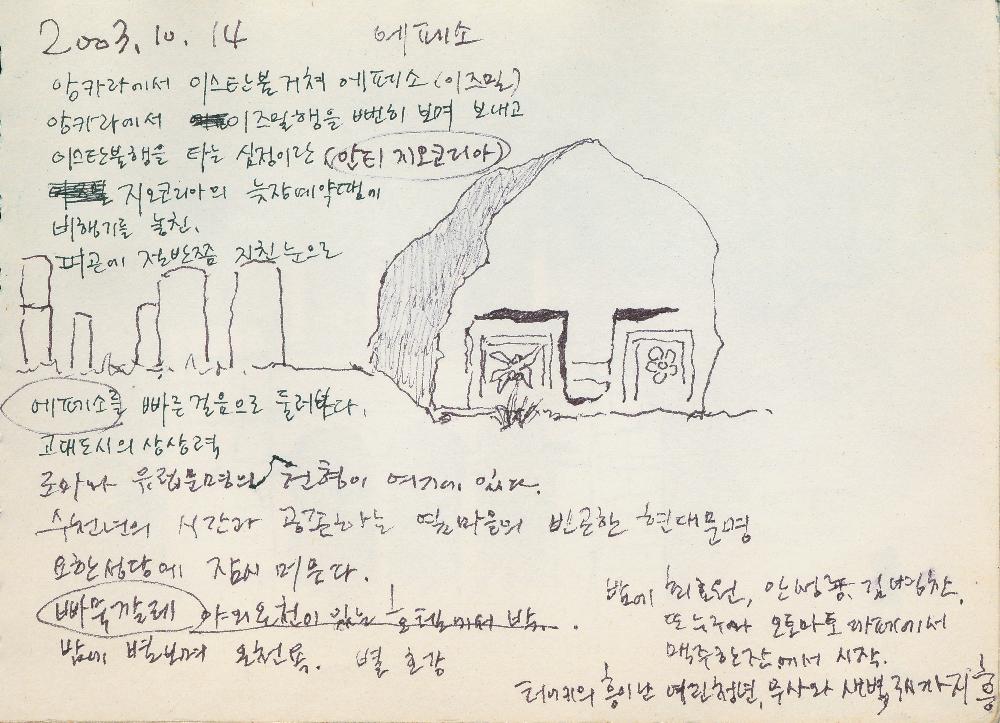 2003.10.14 에페소
앙카라에서 이스탄불거쳐 에페소(이즈밀)
앙카라에서 이즈밀행을 뻔히 보며 보내고
이스탄불행을 타는 심정이란 (안티 지오코리아)
지오코리아의 늦장예약땜에
비행기를 놓친.
피곤에 절반쯤 지친 눈으로
에페소를 빠른걸음으로 둘러본다.
고대도시의 상상력
로마나 유럽문명의 전형이 여기에 있다.
수천년의 시간과 공존하는 옆마을의 빈곤한 현대문명
요한성당에 잠시 머문다.
빠묵깔레 야외온천이 있는 호텔에서 밤..
밤에 별보며 온천욕. 별 쏟아
밤에 최호원,
또 누구와 오토마토 카페에서
맥주한잔에서 시작.
터어키의 흥이난 여린청년, 무사와 새벽 3시까지 흥